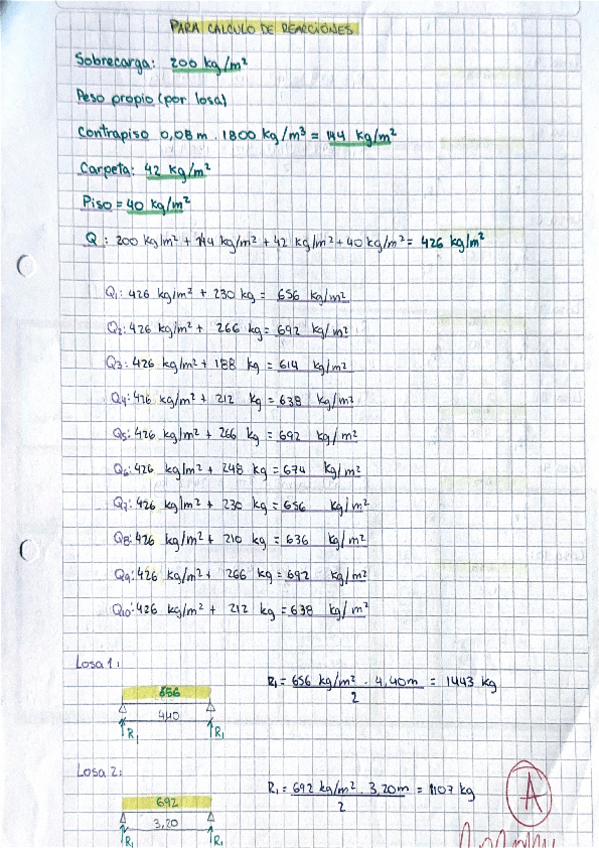 PARA CALCULO DE REACCIONES
Sobrecarga: 200 kg/m²
Peso propio (por losa)
Contrapiso 0,08m . 1800 kg/m³ = 144 kg/m²
Carpeta: 42 kg/m²
Piso = 40 kg/m²
Q : 200 kg/m² + 144 kg/m² + 42 kg/m² + 40 kg/m² = 426 kg/m²
Q1: 426 kg/m² + 230 kg = 656 kg/m²
Q2: 426 kg/m² + 266 kg = 692 kg/m²
Q3: 426 kg/m² + 188 kg = 614 kg/m²
Q4: 426 kg/m² + 212 kg = 638 kg/m²
Q5: 426 kg/m² + 266 kg = 692 kg/m²
Q6: 426 kg/m² + 248 kg = 674 kg/m²
Q7: 426 kg/m² + 230 kg = 656 kg/m²
Q8: 426 kg/m² + 210 kg = 636 kg/m²
Q9: 426 kg/m² + 266 kg = 692 kg/m²
Q10: 426 kg/m² + 212 kg = 638 kg/m²
Losa 1:
R1 = 656 kg/m² . 4,40m = 1443 kg
2
656
440
R1 R1
Losa 2:
R1 = 692 kg/m² . 3,20m = 1107 kg
2
692
3,20
R1 R1
A